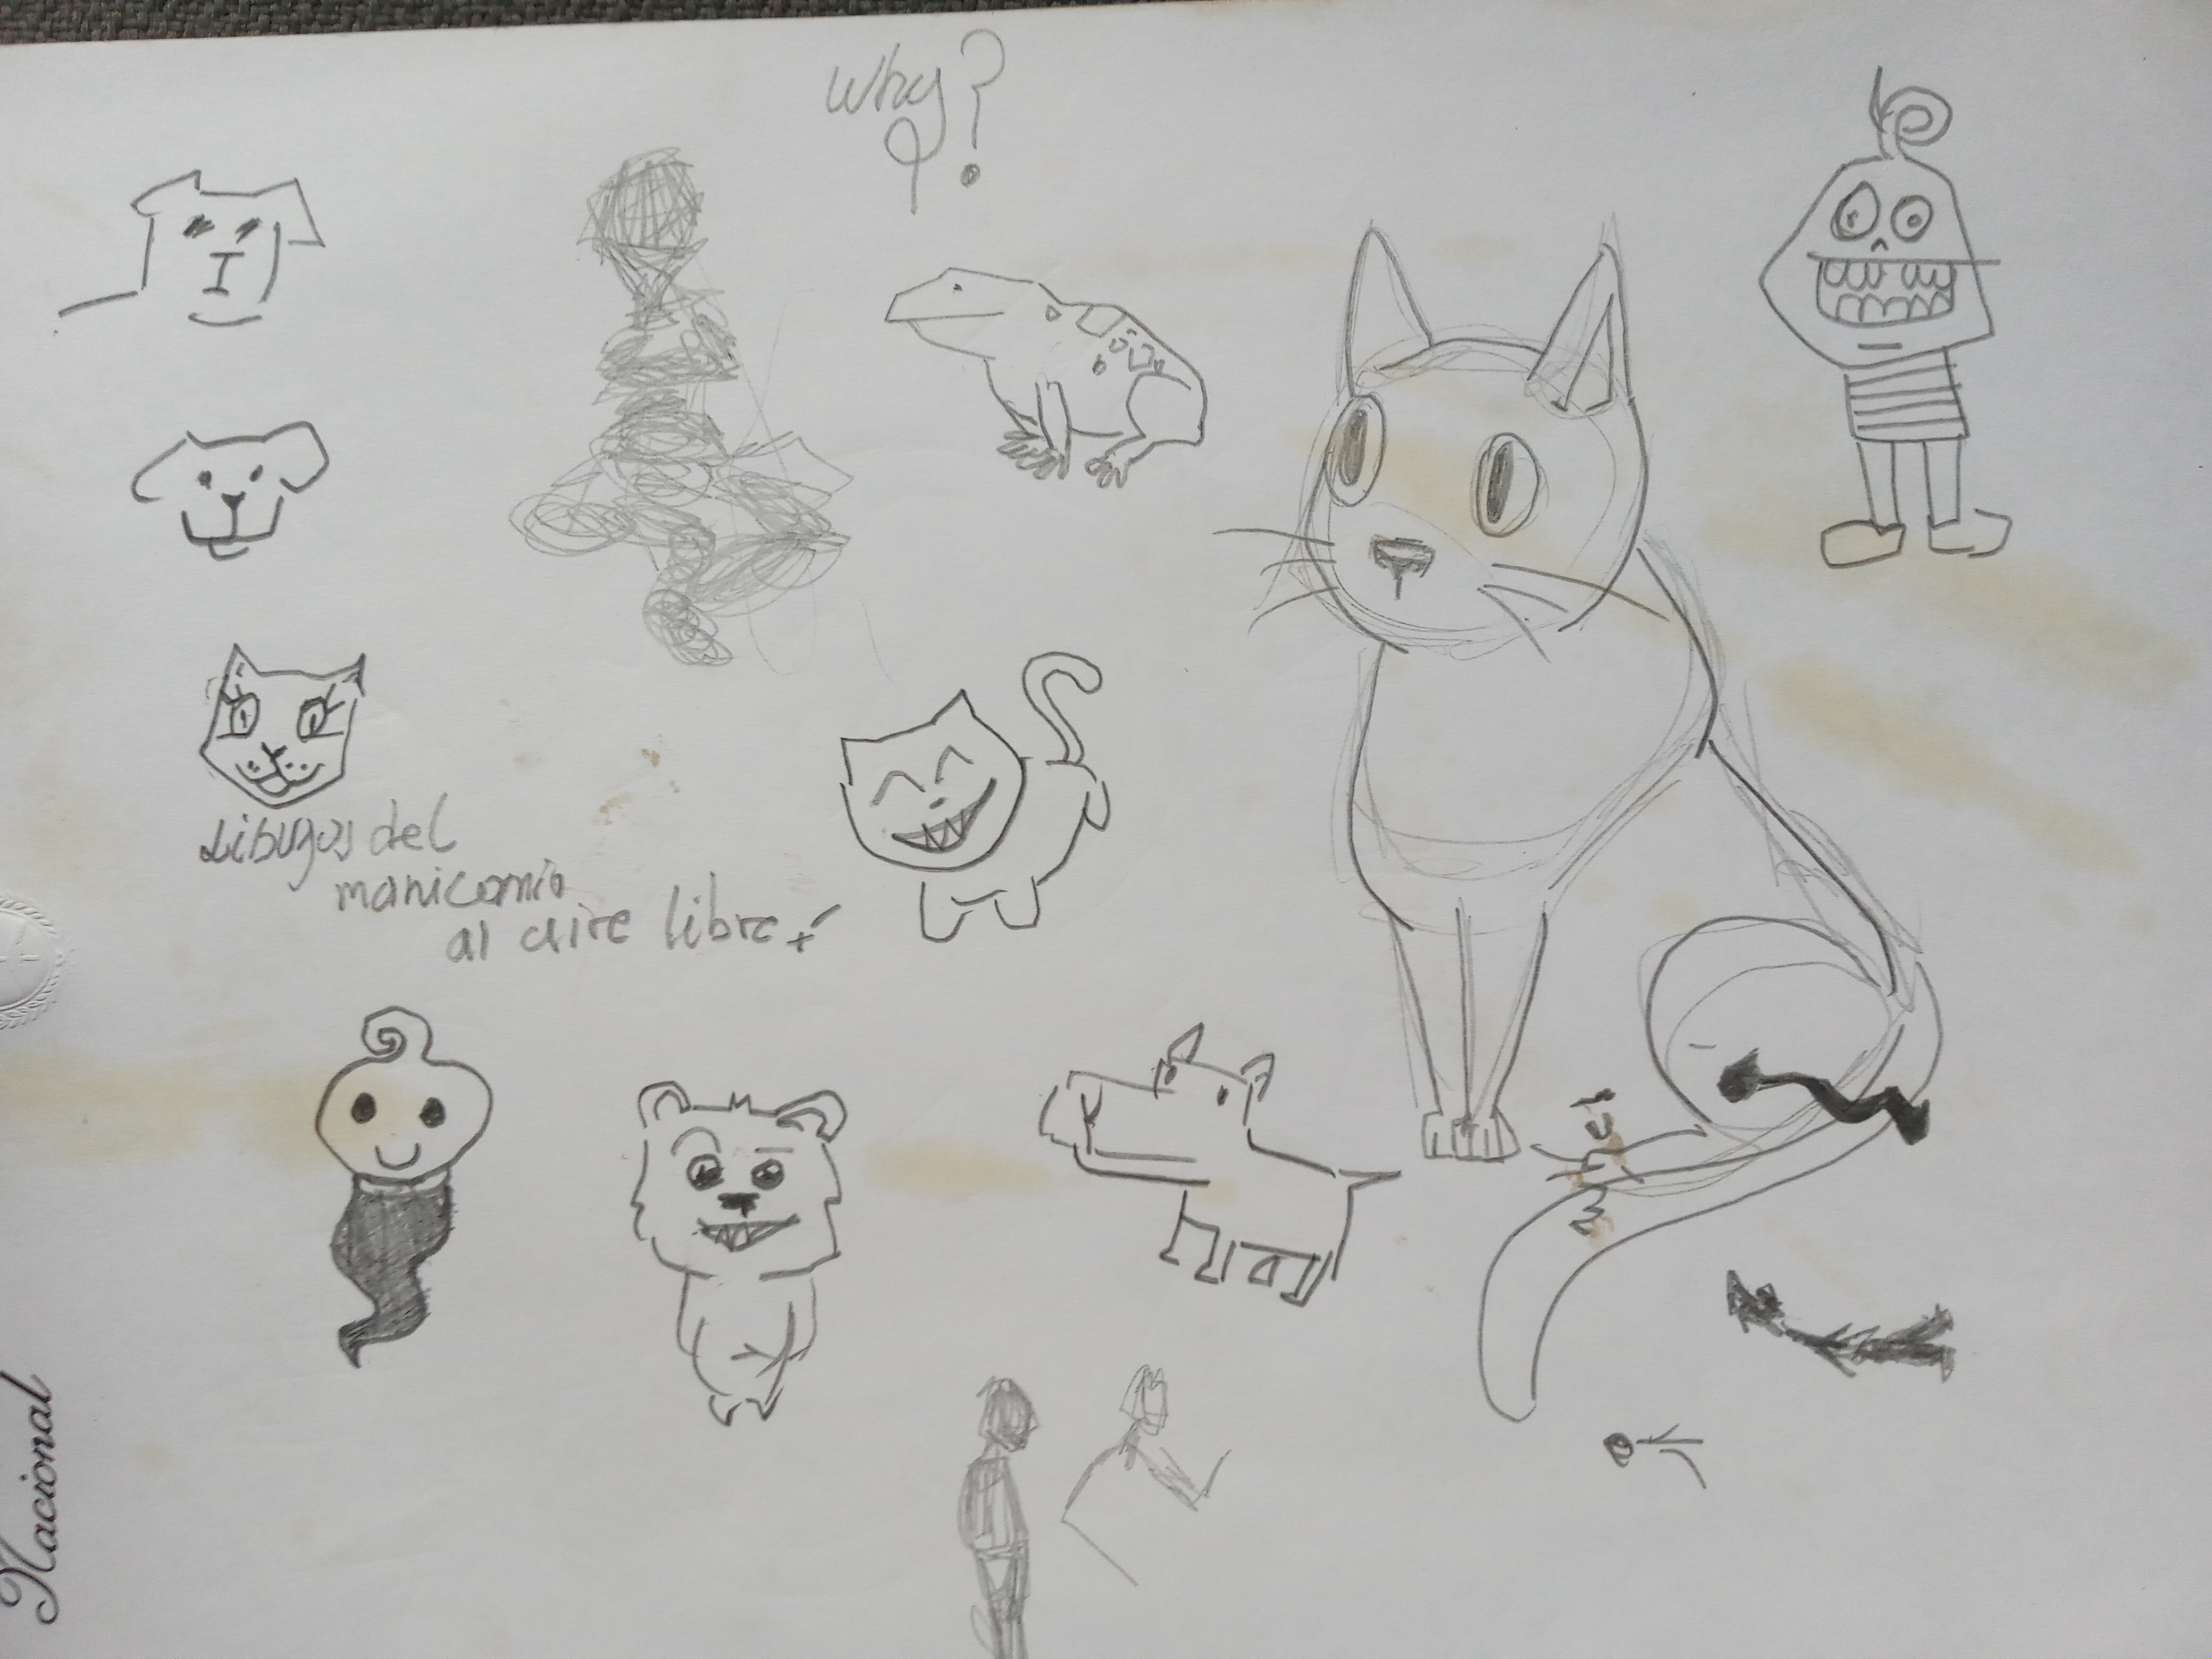 Why?
Dibujos del
manicomio
al aire libre
Nacional